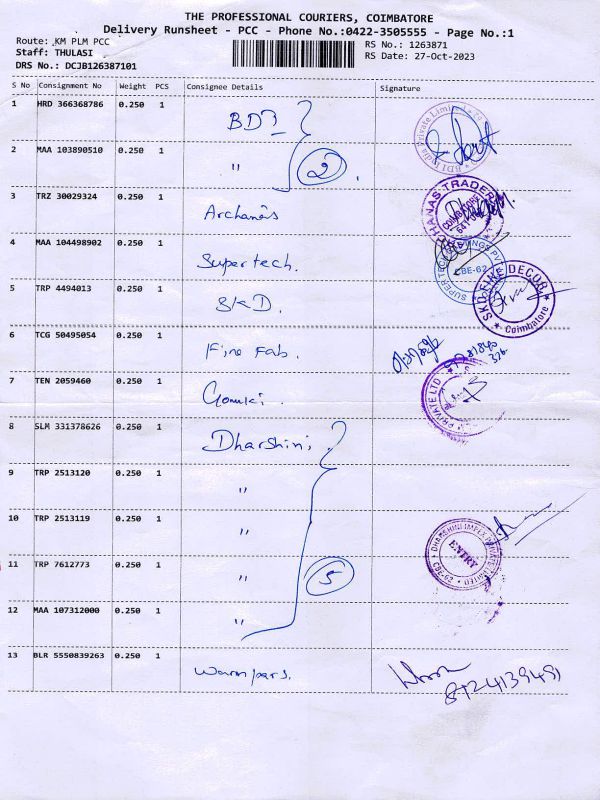 THE PROFESSIONAL COURIERS, COIMBATORE
Delivery Runsheet - PCC - Phone No.:0422-3505555 - Page No.:1
Route: KM PLM PCC
Staff: THULASI
DRS No.: DCJB126387101
RS No.: 1263871
RS Date: 27-Oct-2023
S No Consignment No Weight PCS Consignee Details Signature
1 HRD 366368786 0.250 1
2 MAA 103890510 0.250 1 " 2
3 TRZ 30029324 0.250 1 Archanas
4 MAA 104498902 0.250 1 Supertech.
CBE-62
5 TRP 4494013 0.250 1 SKD.
SKD FINE DECOR
Coimbatore
6 TCG 50495054 0.250 1 Fine Fab.
7 TEN 2059460 0.250 1
PRIVATE LTD
8 SLM 331378626 0.250 1 Dharshini
9 TRP 2513120 0.250 1 "
10 TRP 2513119 0.250 1 "
DHARSHINI IMPEX PRIVATE LIMITED
CBE-62
ENTRY
11 TRP 7612773 0.250 1 " 5
12 MAA 107312000 0.250 1 "
13 BLR 5550839263 0.250 1
8124139491